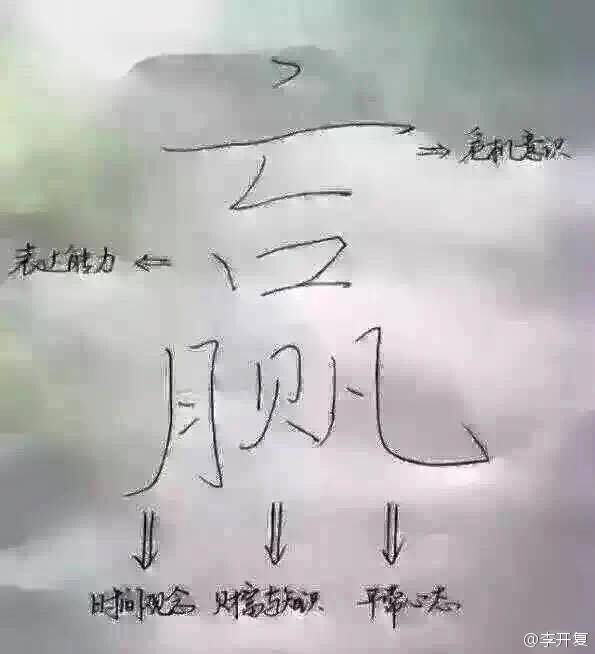 赢
危机意识
表达能力
时间观念 财富与知识 平常心态
@李开复